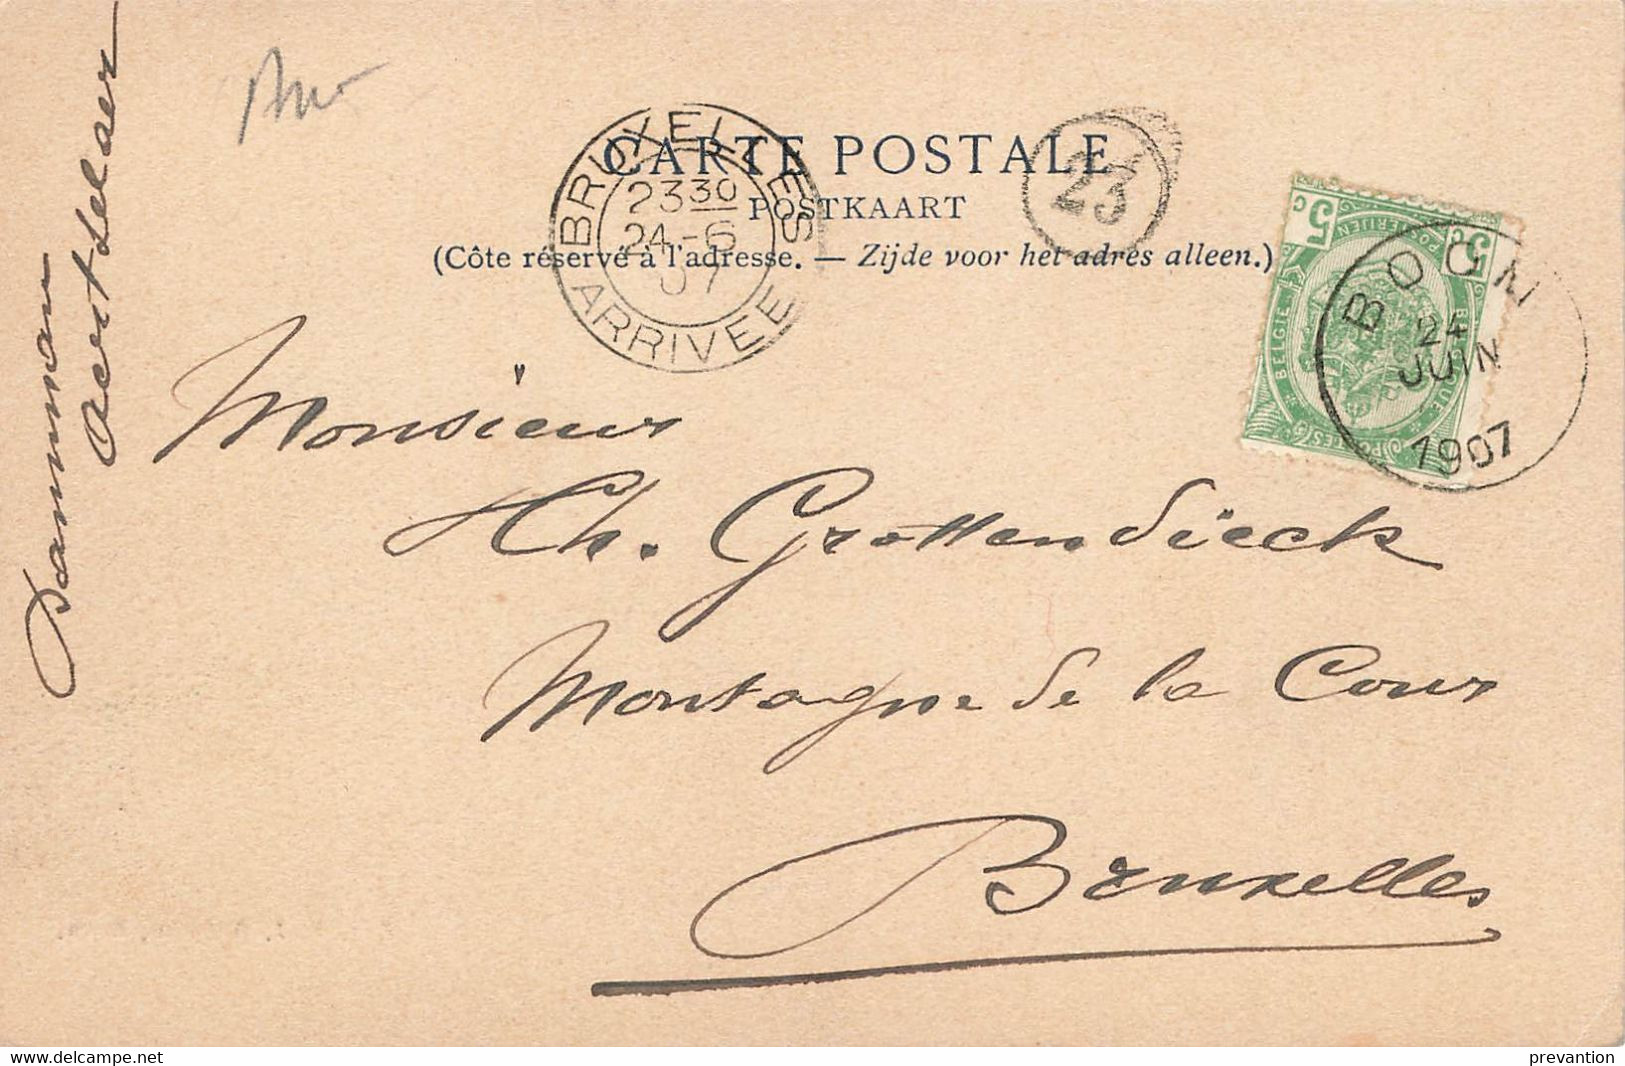 CARTE POSTALE
POSTKAART
(Côte réservé à l'adresse. — Zijde voor het adres alleen.)
BRUXELLES
2330
24-6
07
ARRIVEE
23
5c 5c
POSTERIJEN
BELGIE BELGIQUE
POSTES
BOOM
24
JUIN
1907
Monsieur
Ch. Grottendieck
Montagne de la Cour
Bruxelles
Damman
Aertselaer
delcampe.net
prevantion